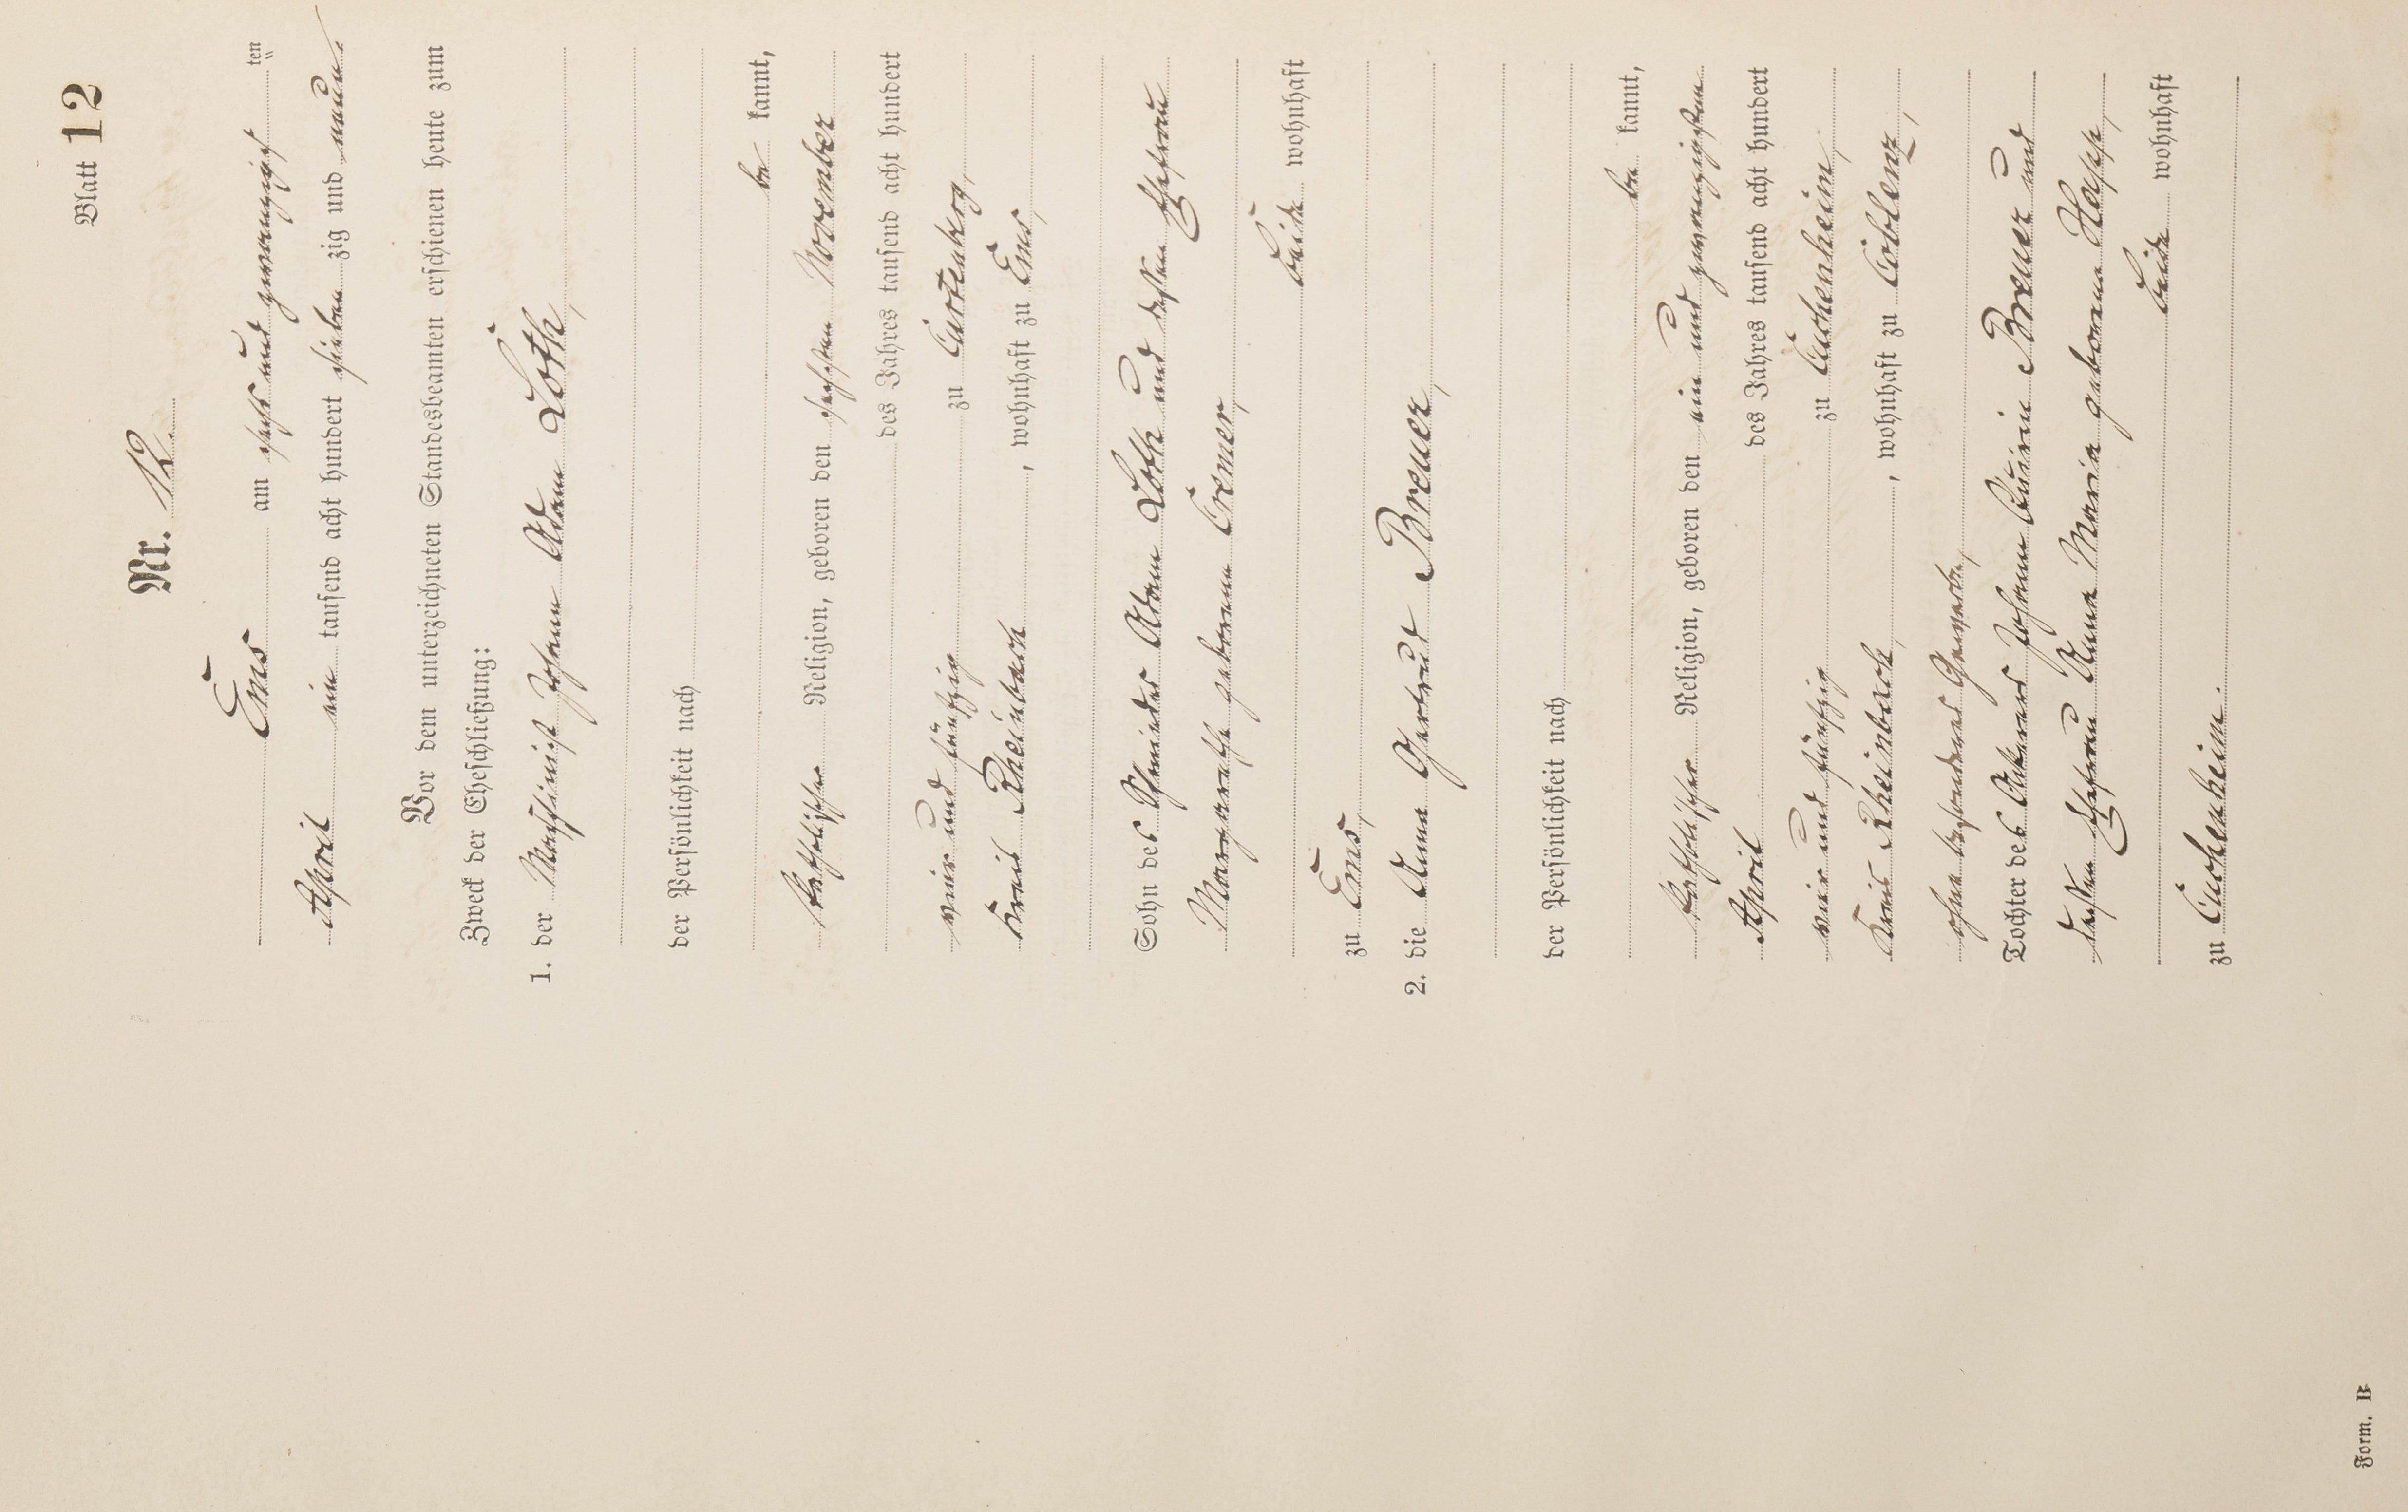 Blatt 12
Nr. 12.
Ems am sechs und zwanzigst ten
April ein tausend acht hundert sieben zig und neun.
Vor dem unterzeichneten Standesbeamten erschienen heute zum
Zweck der Eheschließung:
1. der Maschinist Johann Adam Loth,
der Persönlichkeit nach
be kannt,
katholischer Religion, geboren den sechsten November
des Jahres tausend acht hundert
vier und fünfzig zu Curtenberg,
Kreis Rheinbach, wohnhaft zu Ems,
Sohn des Adam Loth und dessen Ehefrau
Margarethe geborenen Cremer,
beide wohnhaft
zu Ems,
2. die Anna Gertrud Breuer,
der Persönlichkeit nach
be kannt,
katholischer Religion, geboren den ein und zwanzigsten
April des Jahres tausend acht hundert
vier und fünfzig zu Cuchenheim,
Kreis Rheinbach, wohnhaft zu Coblenz,
ohne besonderes Gewerbe,
Tochter des Ackerers Johann Quirin Breuer und
dessen Ehefrau Anna Maria geborenen Hepp,
beide wohnhaft
zu Cuchenheim.
Form. B